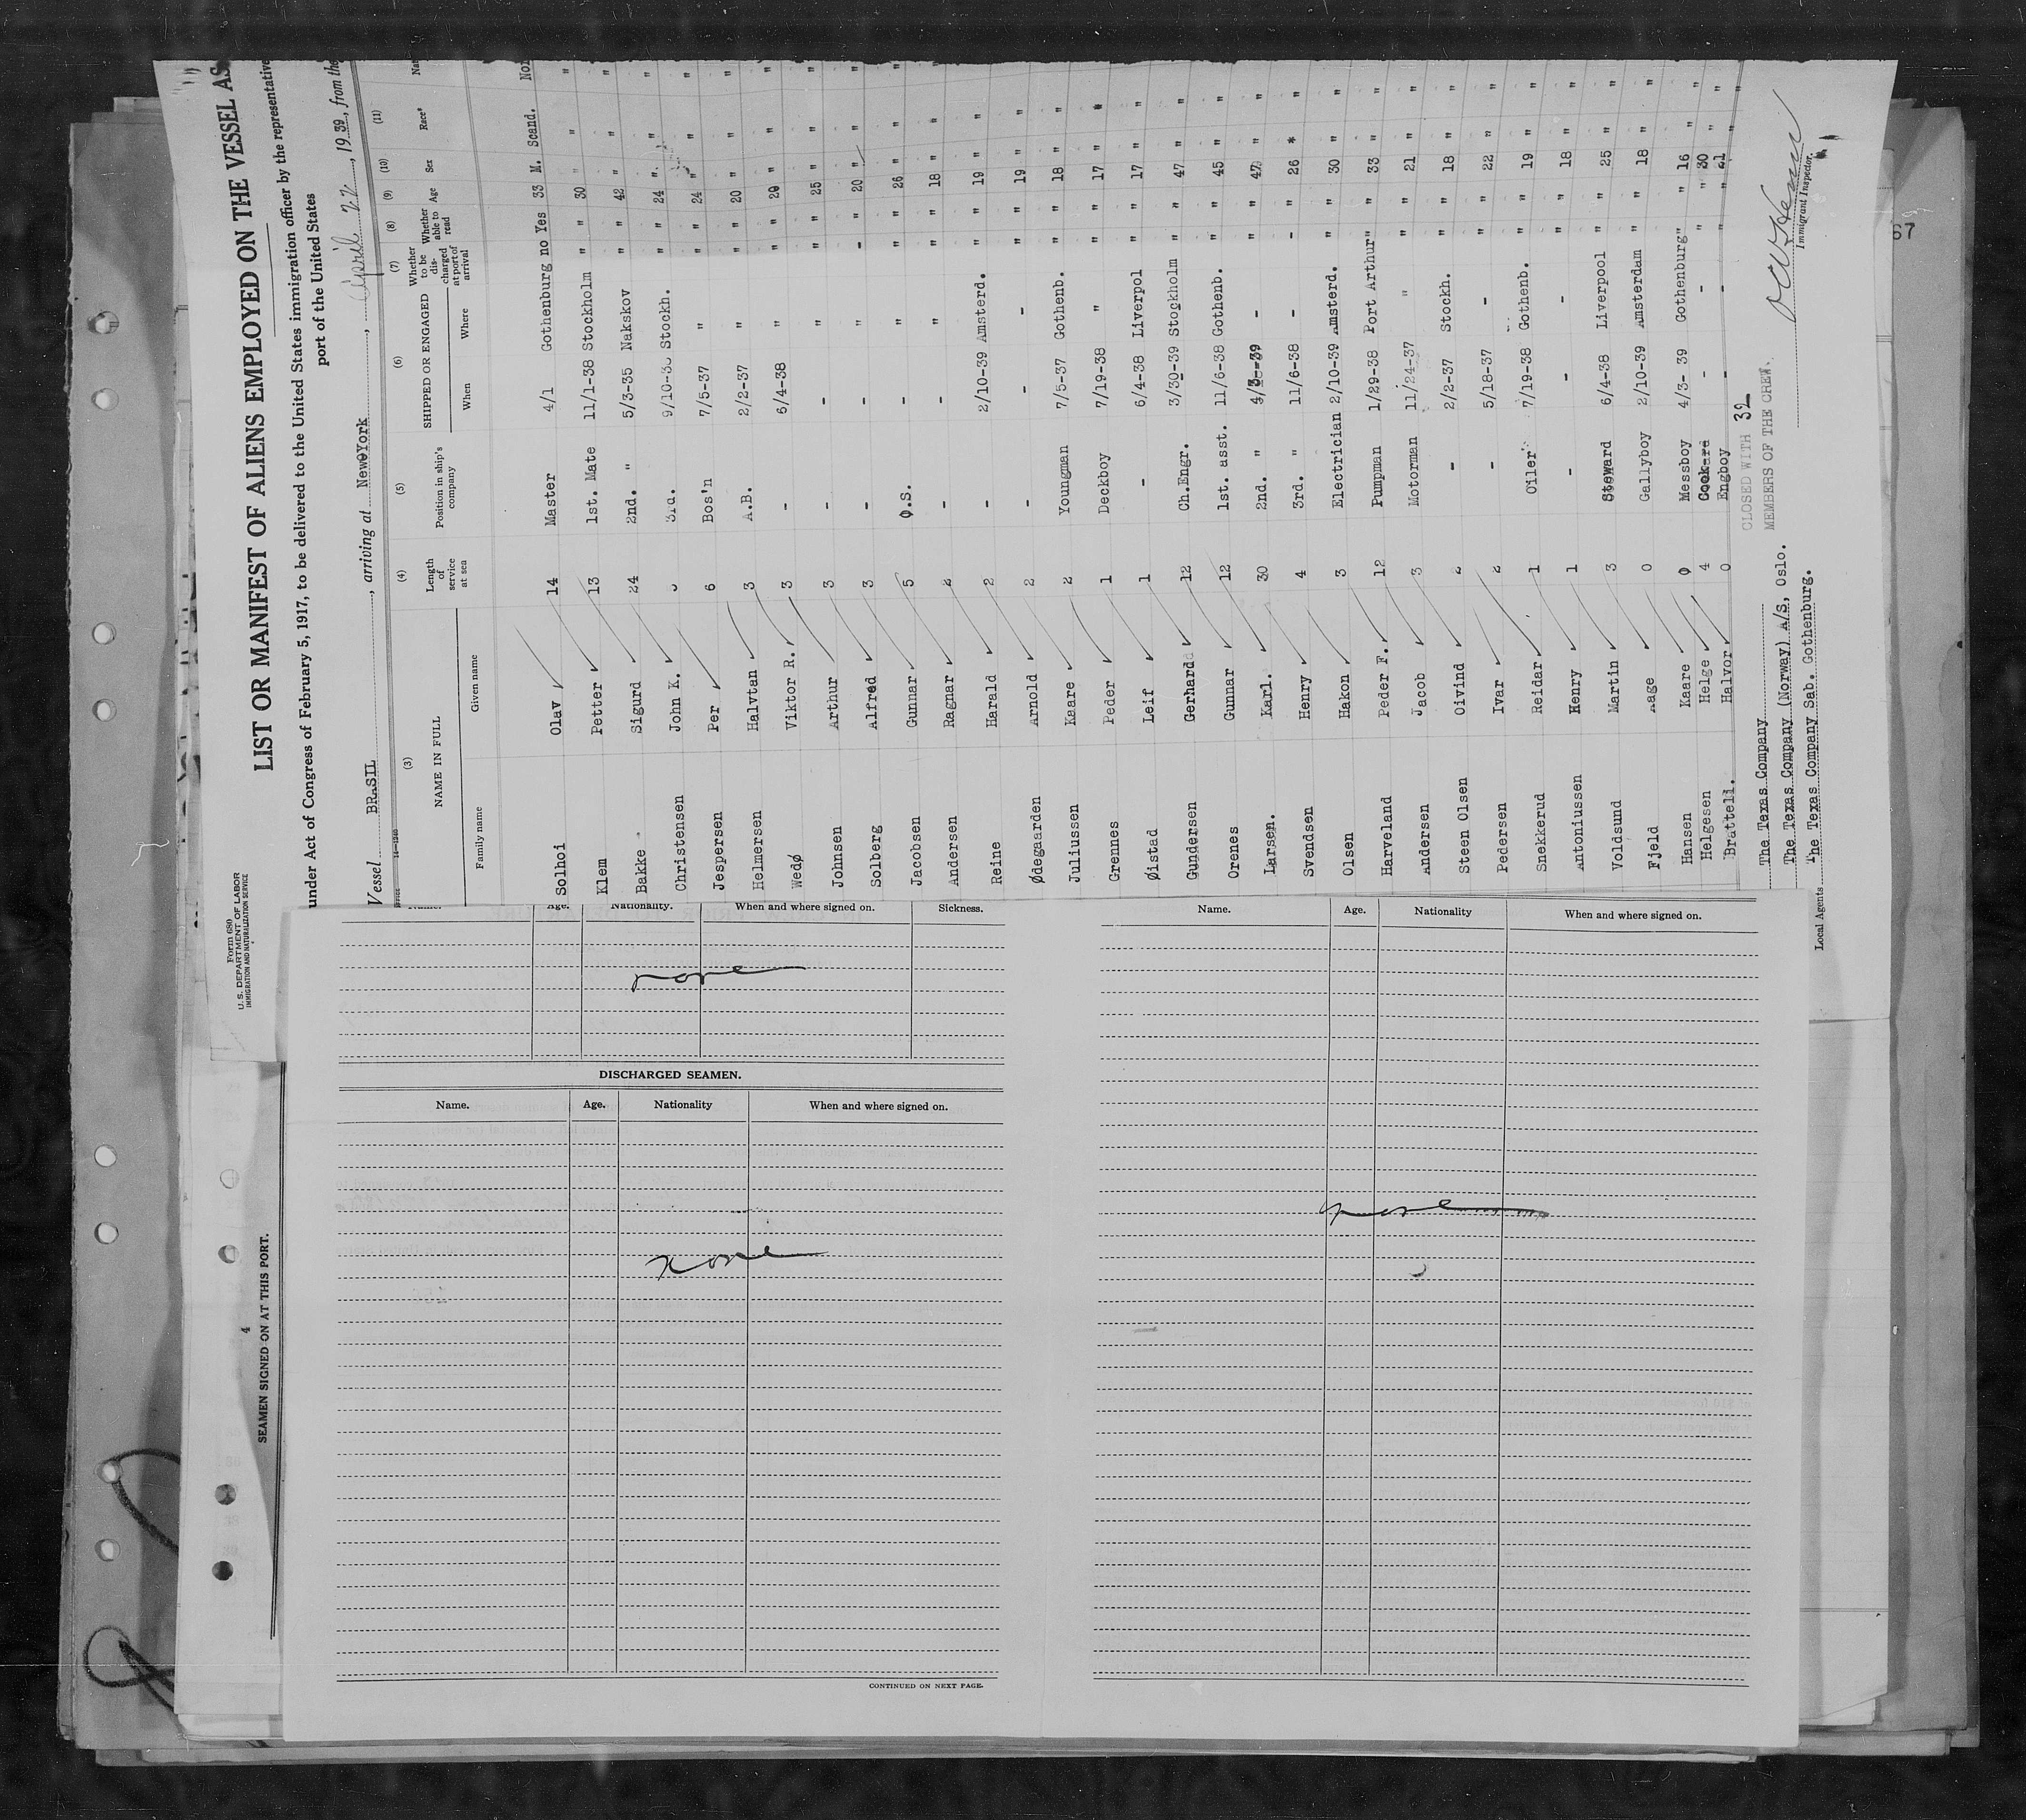 LIST OR MANIFEST OF ALIENS EMPLOYED ON THE VESSEL AS
under Act of Congress of February 5, 1917, to be delivered to the United States immigration officer by the representative
port of the United States
Form 680
U. S. DEPARTMENT OF LABOR
IMMIGRATION AND NATURALIZATION SERVICE
Vessel BRASIL, arriving at NewYork, April 22, 1939, from the
(3) (4) (5) (6) (7) (8) (9) (10) (11)
NAME IN FULL Length of service at sea Position in ship's company SHIPPED OR ENGAGED Whether to be discharged at port of arrival Whether able to read Age Sex Race*
Family name Given name When Where
Solhoi Olav 14 Master 4/1 Gothenburg no Yes 33 M. Scand.
Klem Petter 13 1st. Mate 11/1-38 Stockholm " " 30 " "
Bakke Sigurd 24 2nd. " 5/3-35 Nakskov " " 42 " "
Christensen John K. 3rd. Stockh. " " 24 " "
Jespersen Per 6 Bos'n 7/5-37 " " " 24 " "
Helmersen Halvtan 3 A.B. 2/2-37 " " " 20 " "
Wedø Viktor R. 3 - 6/4-38 " " " 20 " "
Johnsen Arthur 3 - - " " " 25 " "
Solberg Alfred 3 - - " - " 20 " "
Jacobsen Gunnar 5 O.S. - " " " 26 " "
Andersen Ragnar 2 - - " " " 18 " "
Reine Harald 2 - 2/10-39 Amsterd. " " 19 " "
Ødegaarden Arnold 2 - - - " " 19 " "
Juliussen Kaare 2 Youngman 7/5-37 Gothenb. " " 18 " "
Grennes Peder 1 Deckboy 7/19-38 " " " 17 " "
Øistad Leif 1 - 6/4-38 Liverpol " " 17 " "
Gundersen Gerhard 12 Ch.Engr. 3/30-39 Stockholm " " 47 " "
Orenes Gunnar 12 1st. asst. 11/6-38 Gothenb. " " 45 " "
Larsen. Karl. 30 2nd. " - " " "
Svendsen Henry 4 3rd. " 11/6-38 - - " 26 " "
Olsen Hakon 3 Electrician 2/10-39 Amsterd. " " 30 " "
Harveland Peder F. 12 Pumpman 1/29-38 Port Arthur " " 33 " "
Andersen Jacob 3 Motorman 11/24-37 " " " 21 " "
Steen Olsen Oivind 2 - 2/2-37 Stockh. " " 18 " "
Pedersen Ivar 2 - 5/18-37 - " " 22 " "
Snekkerud Reidar 1 Oiler 7/19-38 Gothenb. " " 19 " "
Antoniussen Henry 1 - - - " " 18 " "
Voldsund Martin 3 Steward 6/4-38 Liverpool " " 25 " "
Fjeld Aage 0 Gallyboy 2/10-39 Amsterdam " " 18 " "
Hansen Kaare 0 Messboy 4/3-39 Gothenburg " " 16 " "
Helgesen Helge 4 - - " " 30 " "
Bratteli. Halvor 0 Engboy - - " " 21 " "
CLOSED WITH 32
MEMBERS OF THE CREW.
Immigrant Inspector.
The Texas Company
The Texas Company (Norway) A/S, Oslo.
Local Agents The Texas Company Sab. Gothenburg.
67
4
SEAMEN SIGNED ON AT THIS PORT.
Name. Age. Nationality. When and where signed on. Sickness.
none
DISCHARGED SEAMEN.
Name. Age. Nationality When and where signed on.
none
CONTINUED ON NEXT PAGE.
Name. Age. Nationality When and where signed on.
none